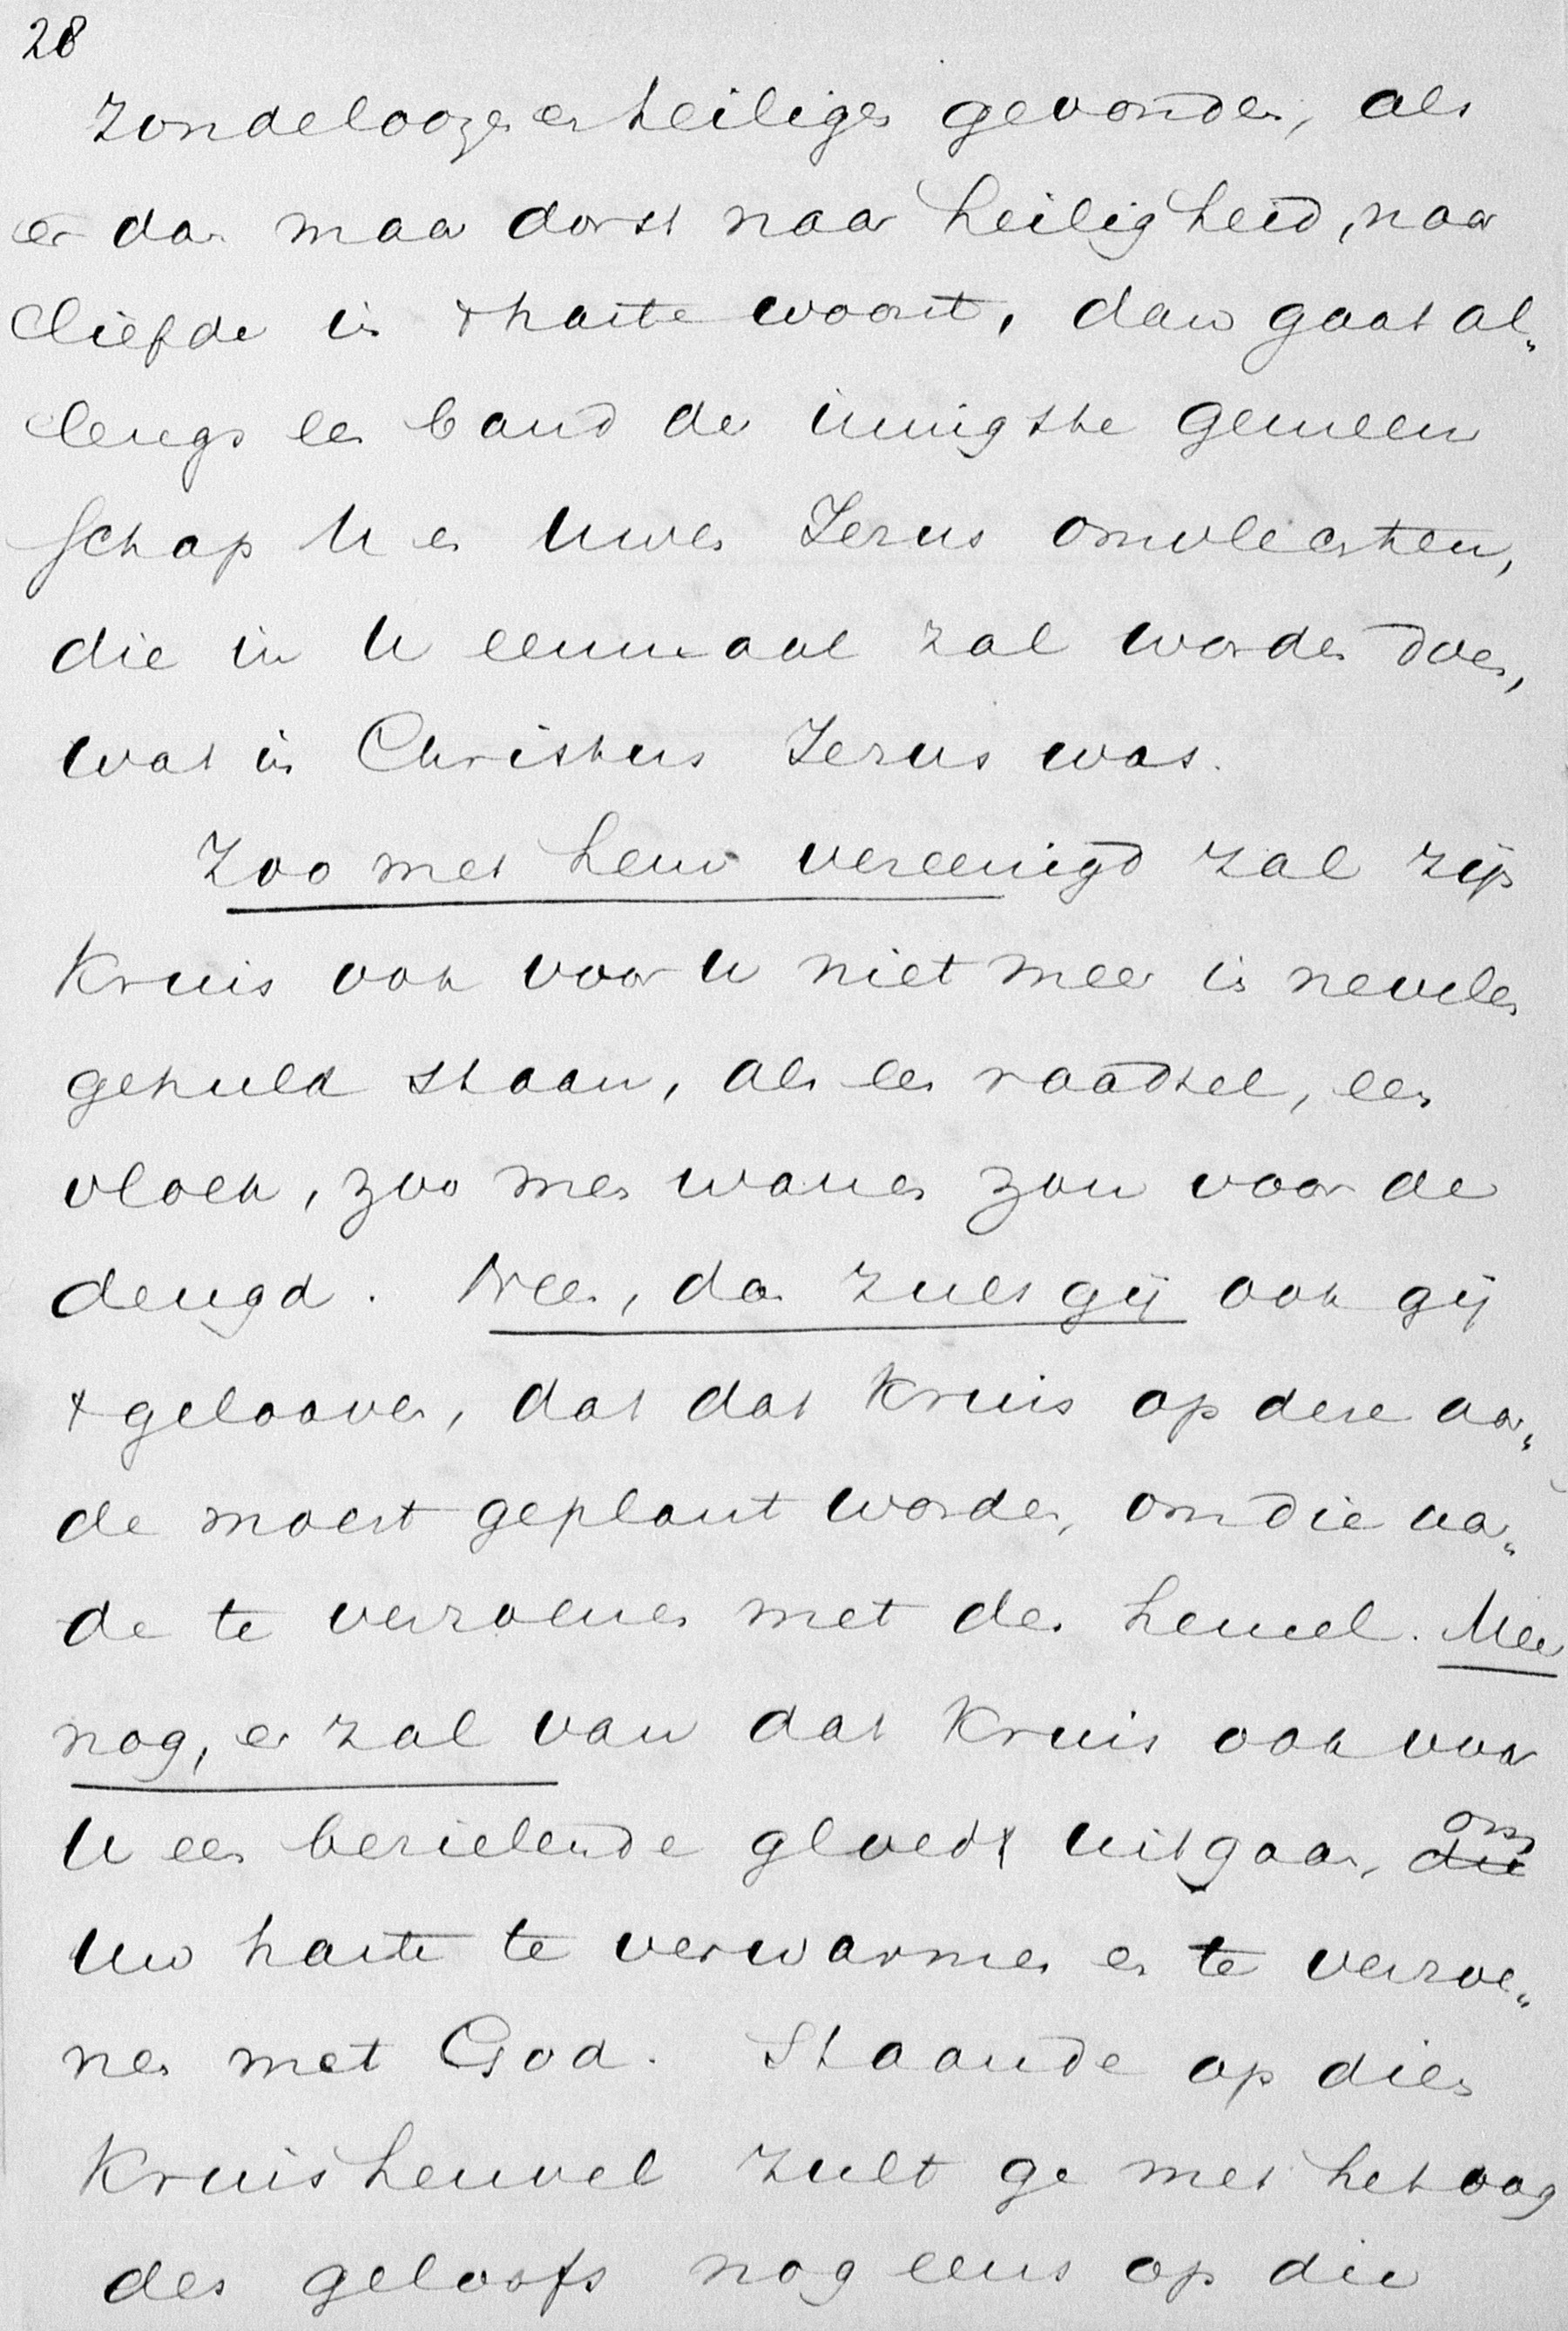 28
zondelooze en heilige gevonden, als
er dan maar dorst naar heiligheid, naar
liefde in 't harte woont, dan gaat al„
lengs een band der innigste gemeen
schap U en Uwen Jezus omvlechten,
die in U eenmaal zal worden doen,
wat in Christus Jezus was.
Zoo met hem vereenigd zal zijn
Kruis ook voor U niet meer in nevelen
gehuld staan, als een raadsel, een
vloek, zoo men wanen zou voor de
deugd. Neen, dan zult gij ook gij
't gelooven, dat dat Kruis op deze aar„
de moest geplant worden, om die aar„
de te verzoenen met den hemel. Meer
nog, er zal van dat Kruis ook voor
U een bezielende gloed uitgaan, die om
Uw harte te verwarmen en te verzoe„
nen met God. Staande op dien
Kruisheuvel zult ge met het oog
des geloofs nog eens op die